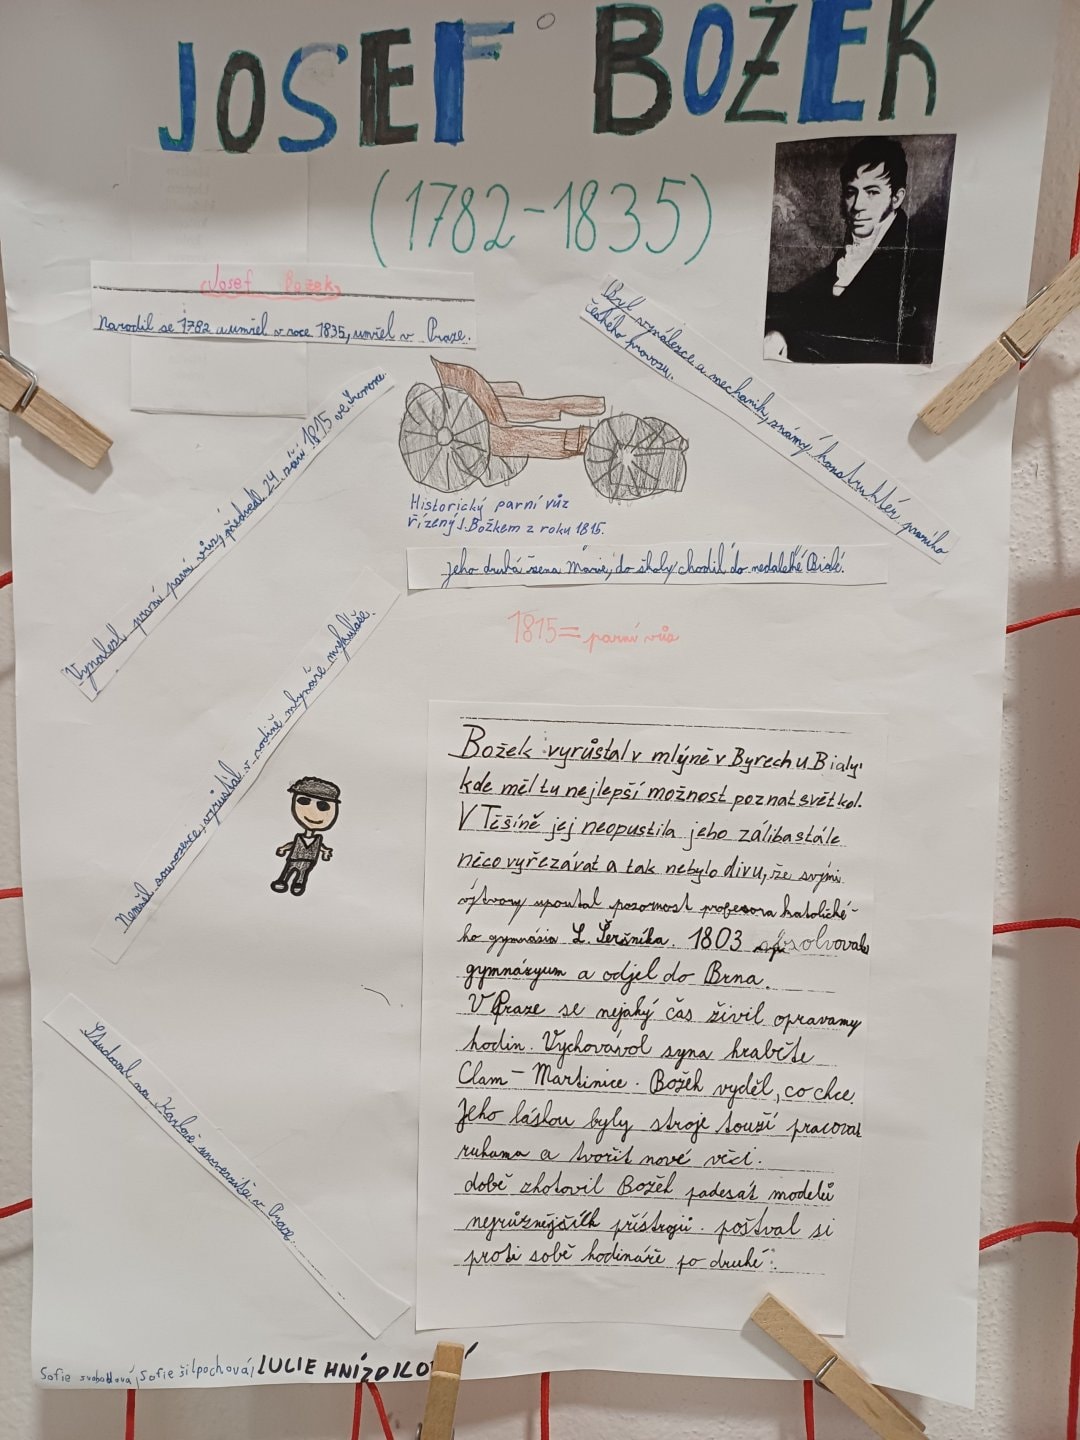 JOSEF BOŽEK
(1782-1835)
Josef Božek
Narodil se 1782 a umřel v roce 1835, umřel v Praze.
Byl vynálezce a mechanik, známý konstruktér prvního
českého provozu.
Vynalezl první parní vůz, předvedl 24. září 1815 ve Stromovce.
Historický parní vůz
řízený J. Božkem z roku 1815.
Jeho druhá žena Marie, do školy chodil do nedaleké Bialé.
1815= parní vůz
Neměl sourozence, vyrůstal v rodině mlynáře mykuláše.
Božek vyrůstal v mlýně v Byrech u Bialy.
kde měl tu nejlepší možnost poznat svět kol.
V Těšíně jej neopustila jeho záliba stále
něco vyřezávat a tak nebylo divu, že svými
výtvory upoutal pozornost profesora katolické-
ho gymnásia L. Šeršnika. 1803 absolvoval
gymnázyum a odjel do Brna.
V Praze se nějaký čas živil opravamy
hodin. Vychovávol syna hraběte
Clam-Martinice. Božek vyděl, co chce.
Jeho láskou byly stroje touží pracovat
rukama a tvořit nové věci.
době zhotovil Božek padesát modelů
nejrůznějšílk přístrojů. poštval si
proti sobě hodináře po druhé.
Studoval na Karlově univerzitě v Praze.
Sofie svobodová, Sofie šilpochová, LULIE HNÍZDILO